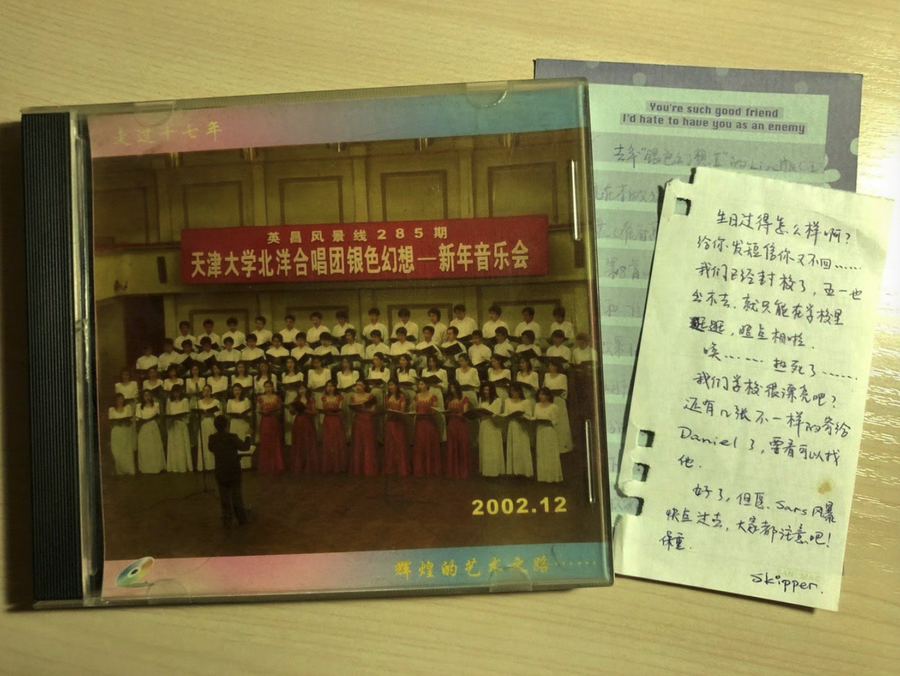 走过十七年
英昌风景线285期
天津大学北洋合唱团银色幻想—新年音乐会
2002.12
辉煌的艺术之路······
You're such good friend
I'd hate to have you as an enemy
去年“银色幻想
生日过得怎么样啊?
给你发短信你又不回……
我们已经封校了,五一也
出不去,就只能在学校里
逛逛,照点相啦.
唉……… 担死了……
我们学校很漂亮吧?
还有几张不一样的寄给
Daniel了,要看可以找
他.
好了,但愿,Sars风暴
快点过去,大家都注意吧!
保重.
Skipper.